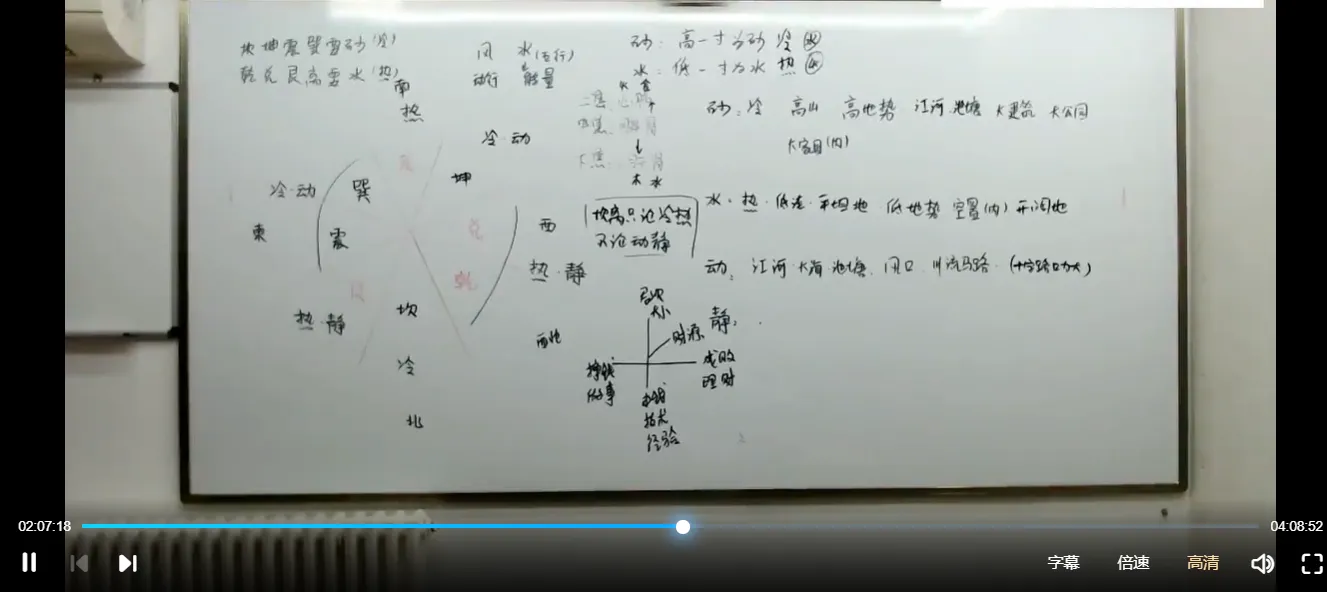 坎坤震巽要砂(冷)
乾兑艮离要水(热)
风 水(五行)
动行 能量
砂：高一寸为砂 冷 水
水：低一寸为水 热 火
南
热
火 金
木 水
砂：冷 高山 高地势 江河.池塘 大建筑 大公园
大家具(内)
冷·动
坤
冷·动
巽
震
東
兑
乾
西
热·静
坎离只论冷热
不论动静
水·热·低洼·平坦地 低地势 空置(内) 开阔地
动：江河·大海·池塘、风口、川流马路·(十字路口为大)
静：
热·静
坎
冷
北
西北
大小
财源
挣钱
做事
成败
理财
本领
技术
经验
02:07:18
04:08:52
字幕
倍速
高清